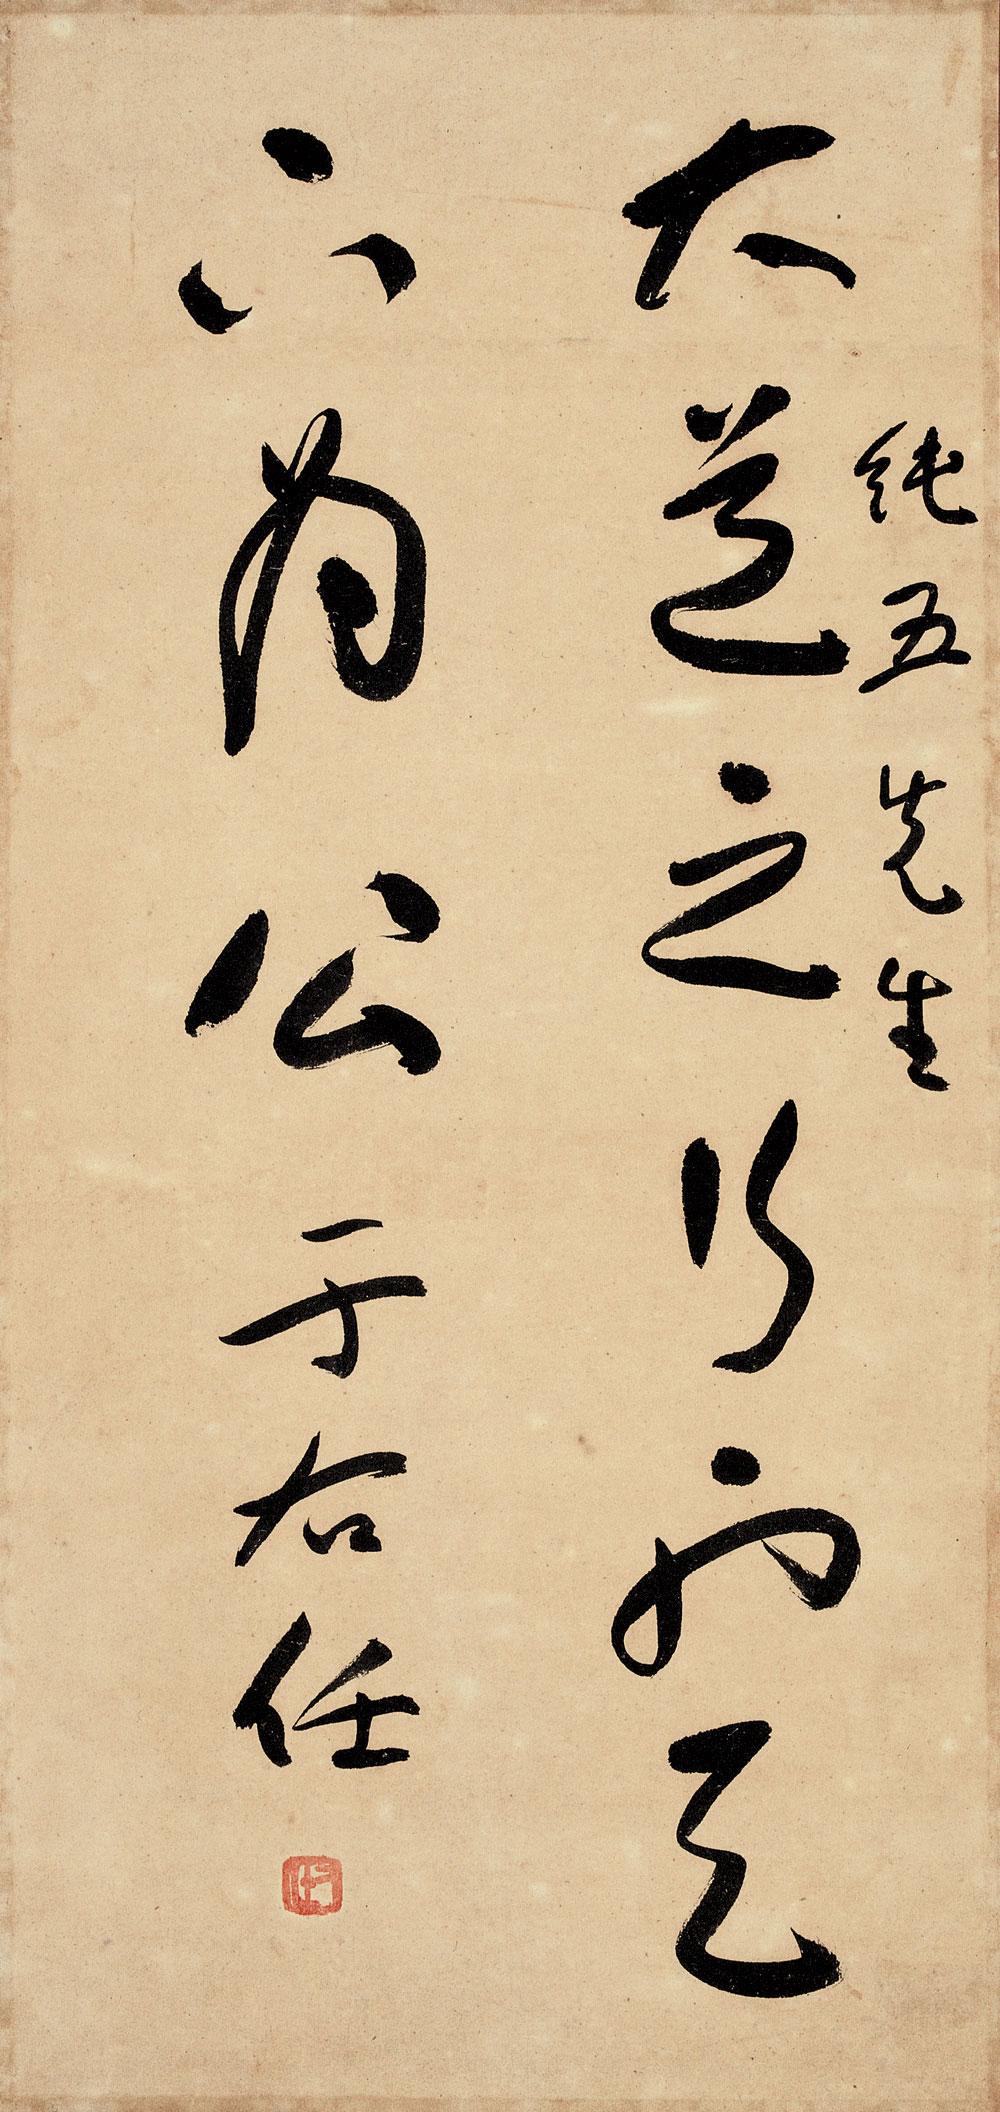 純五先生
大道之行也天
下為公于右任